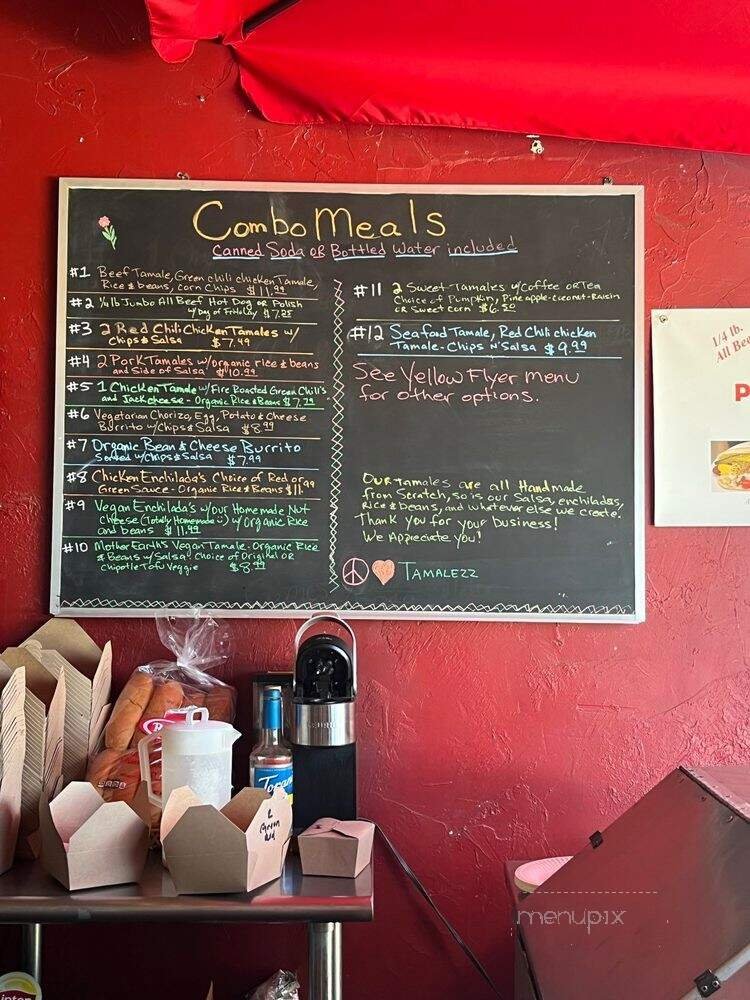 Combo Meals
Canned Soda OR Bottled Water included
#1 Beef Tamale, Green chili chicken Tamale,
Rice & beans, Corn Chips $11.99
#2 1/4 lb Jumbo All Beef Hot Dog OR Polish
w/Bag of Fritolay $7.25
#3 2 Red Chili Chicken Tamales w/
Chips & Salsa $7.49
#4 2 Pork Tamales w/organic rice & beans
and Side of Salsa $10.99
#5 1 Chicken Tamale w/Fire Roasted Green Chili's
and Jack cheese - Organic Rice & Beans $7.79
#6 Vegetarian Chorizo, Egg, Potato & Cheese
Burrito w/Chips & Salsa $8.99
#7 Organic Bean & Cheese Burrito
Served w/Chips & Salsa $7.99
#8 Chicken Enchilada's Choice of Red or
Green Sauce - Organic Rice & Beans $11.99
#9 Vegan Enchilada's w/our Homemade Nut
Cheese (Totally Homemade) w/Organic Rice
and beans $11.99
#10 Mother Earth's Vegan Tamale - Organic Rice
& Beans w/Salsa - Choice of Original OR
Chipotle Tofu Veggie $8.99
#11 2 Sweet Tamales w/Coffee or Tea
Choice of Pumpkin, Pineapple-Coconut-Raisin
or Sweet corn $6.50
#12 Seafood Tamale, Red Chili chicken
Tamale - Chips N' Salsa $9.99
See Yellow Flyer menu
for other options.
Our tamales are all Handmade
from Scratch, so is our Salsa, enchiladas,
Rice & beans, and whatever else we create.
Thank you for your business!
We Appreciate you!
TAMALEZZ
1/4 lb.
All Bee
P
Torani
Green
Red
menupix